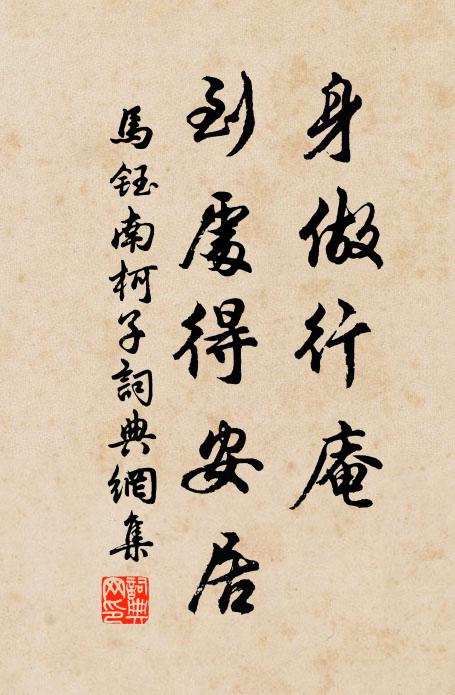 身做行庵
到處得安居
馬鈺南柯子詞典網集
詞典网印